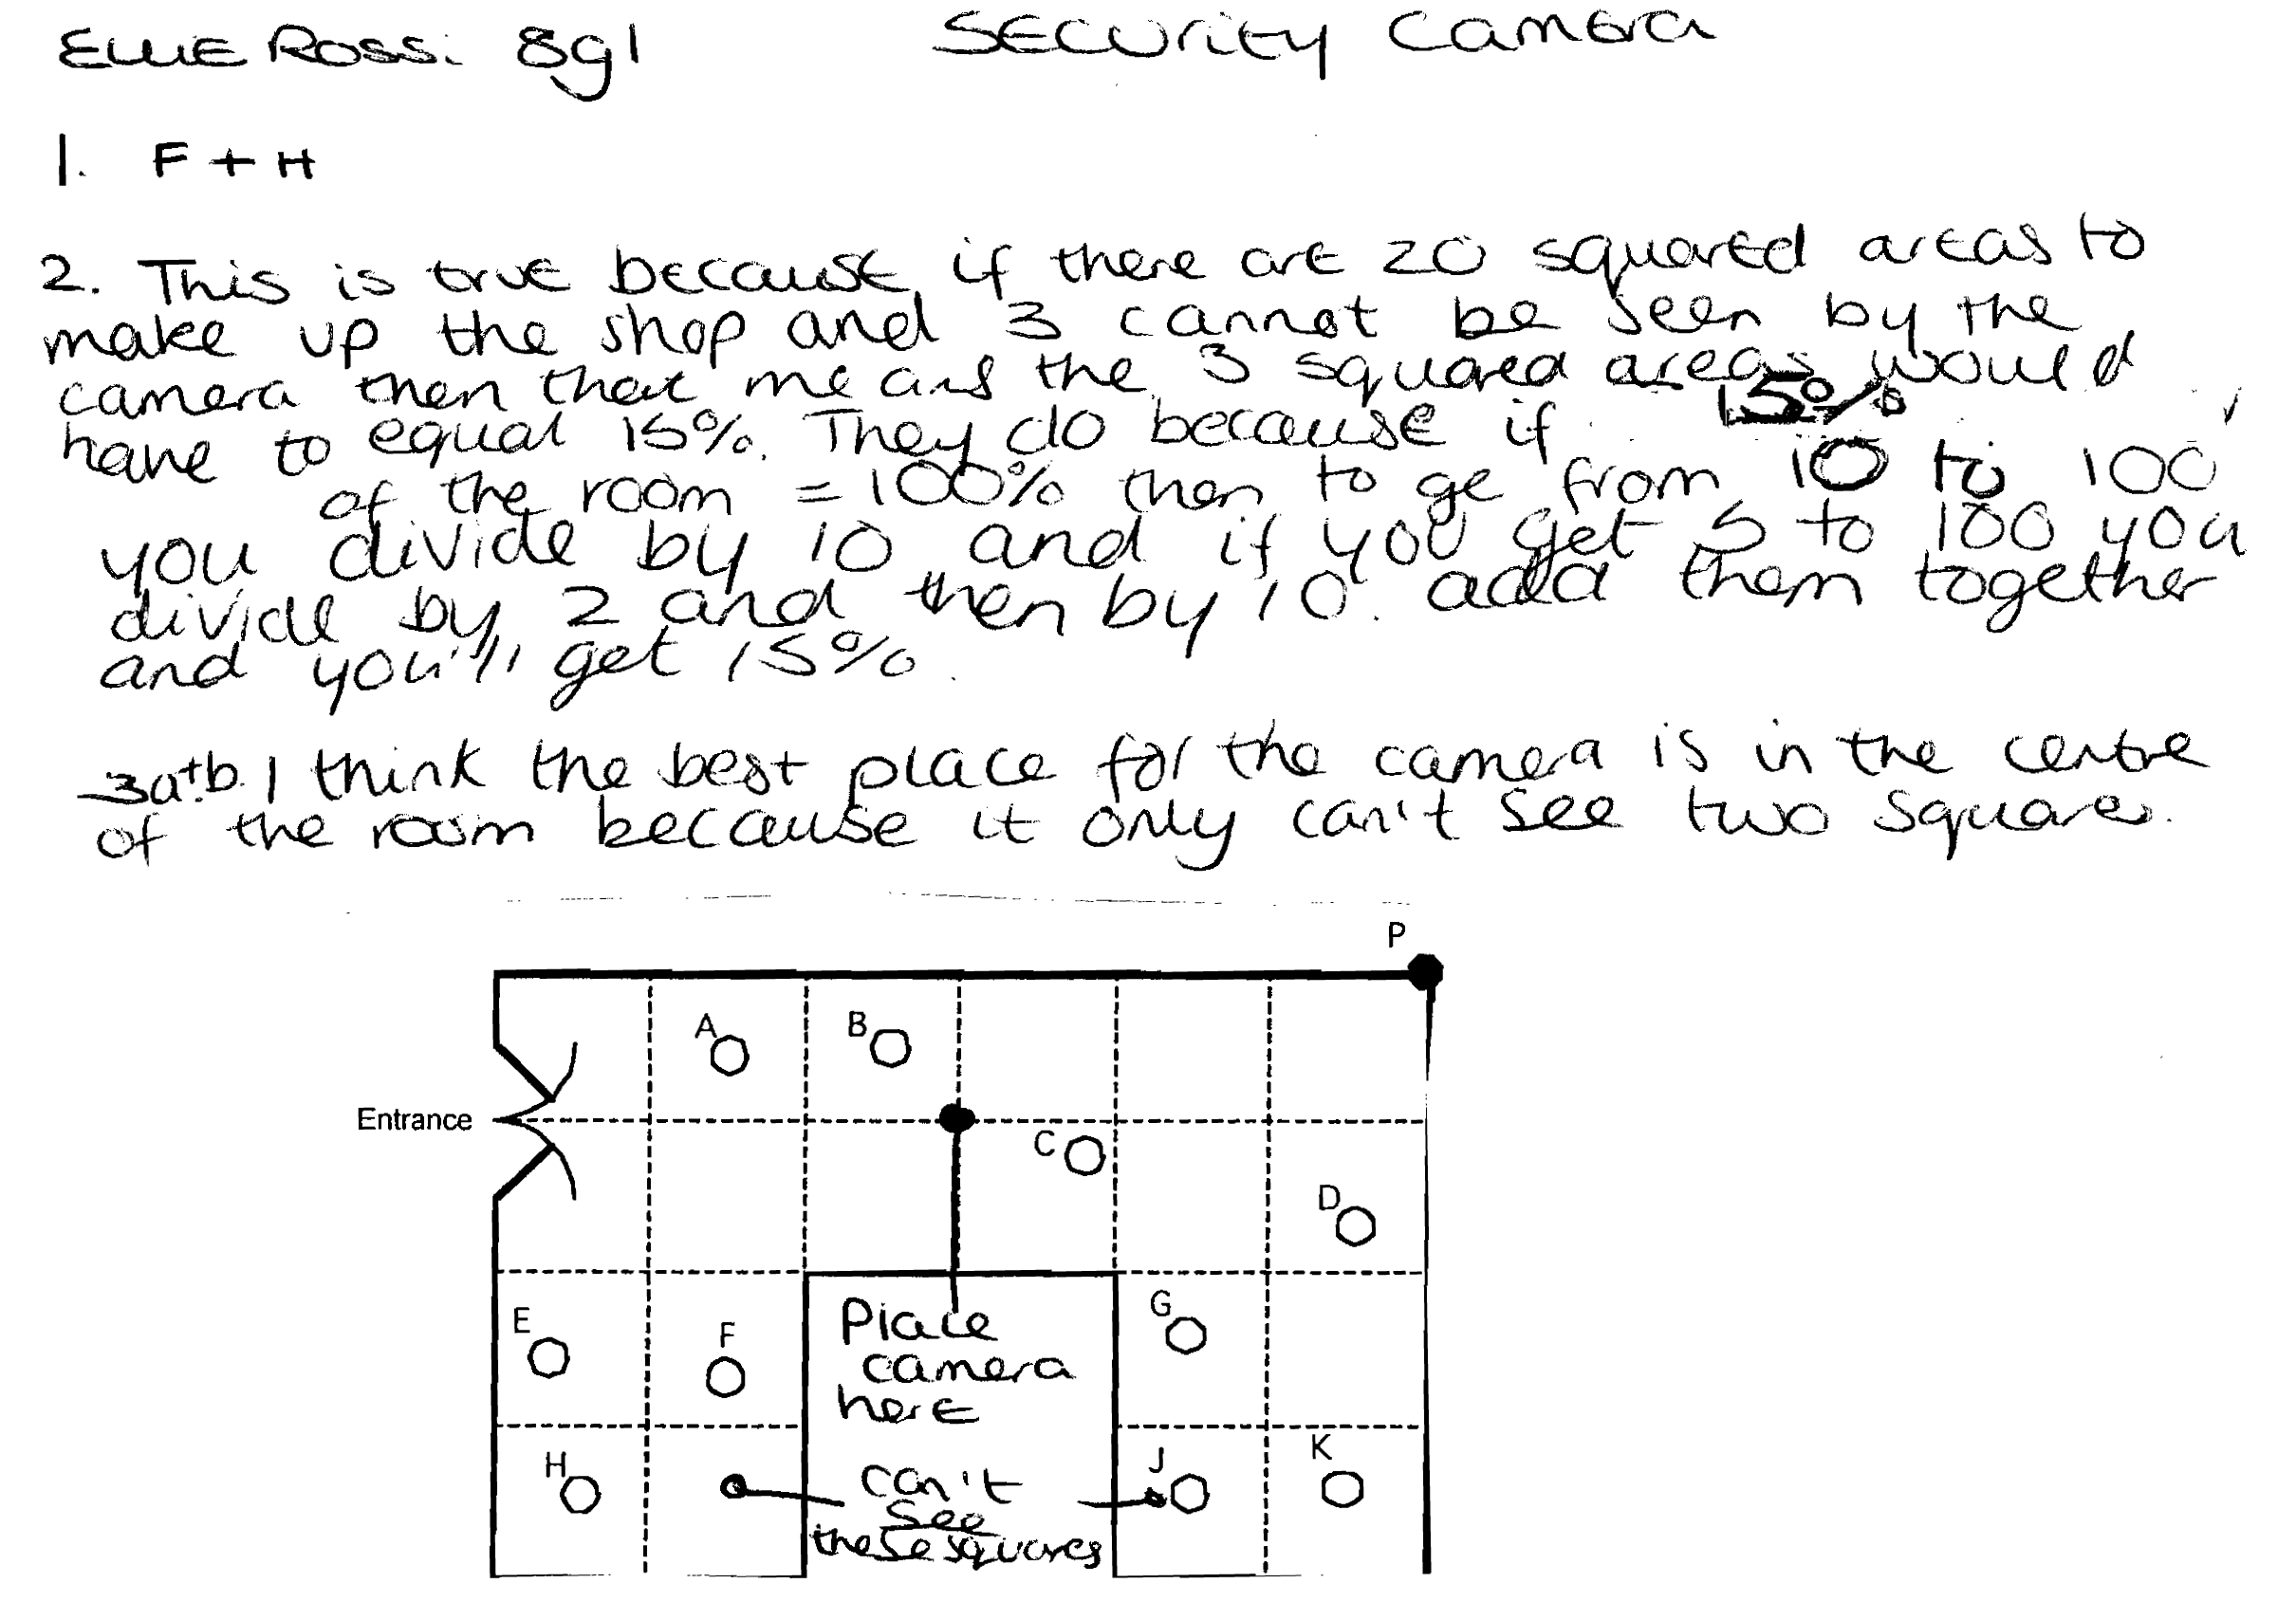 ELLIE ROSSi 8g1 SECURITY CAMERA
1. F + H
2. This is true because if there are 20 squared areas to
make up the shop and 3 cannot be seen by the
camera then that means the 3 squared areas would
have to equal 15%. They do because if 15%
of the room = 100% then to ge from 10 to 100
you divide by 10 and if you get 5 to 100 you
divide by 2 and then by 10. add them together
and you'll get 15%.
3a+b. I think the best place for the camera is in the centre
of the room because it only can't see two squares.
P
A
B
Entrance
C
D
E
F
Place
camera
here
G
H
can't
see
these squares
J
K